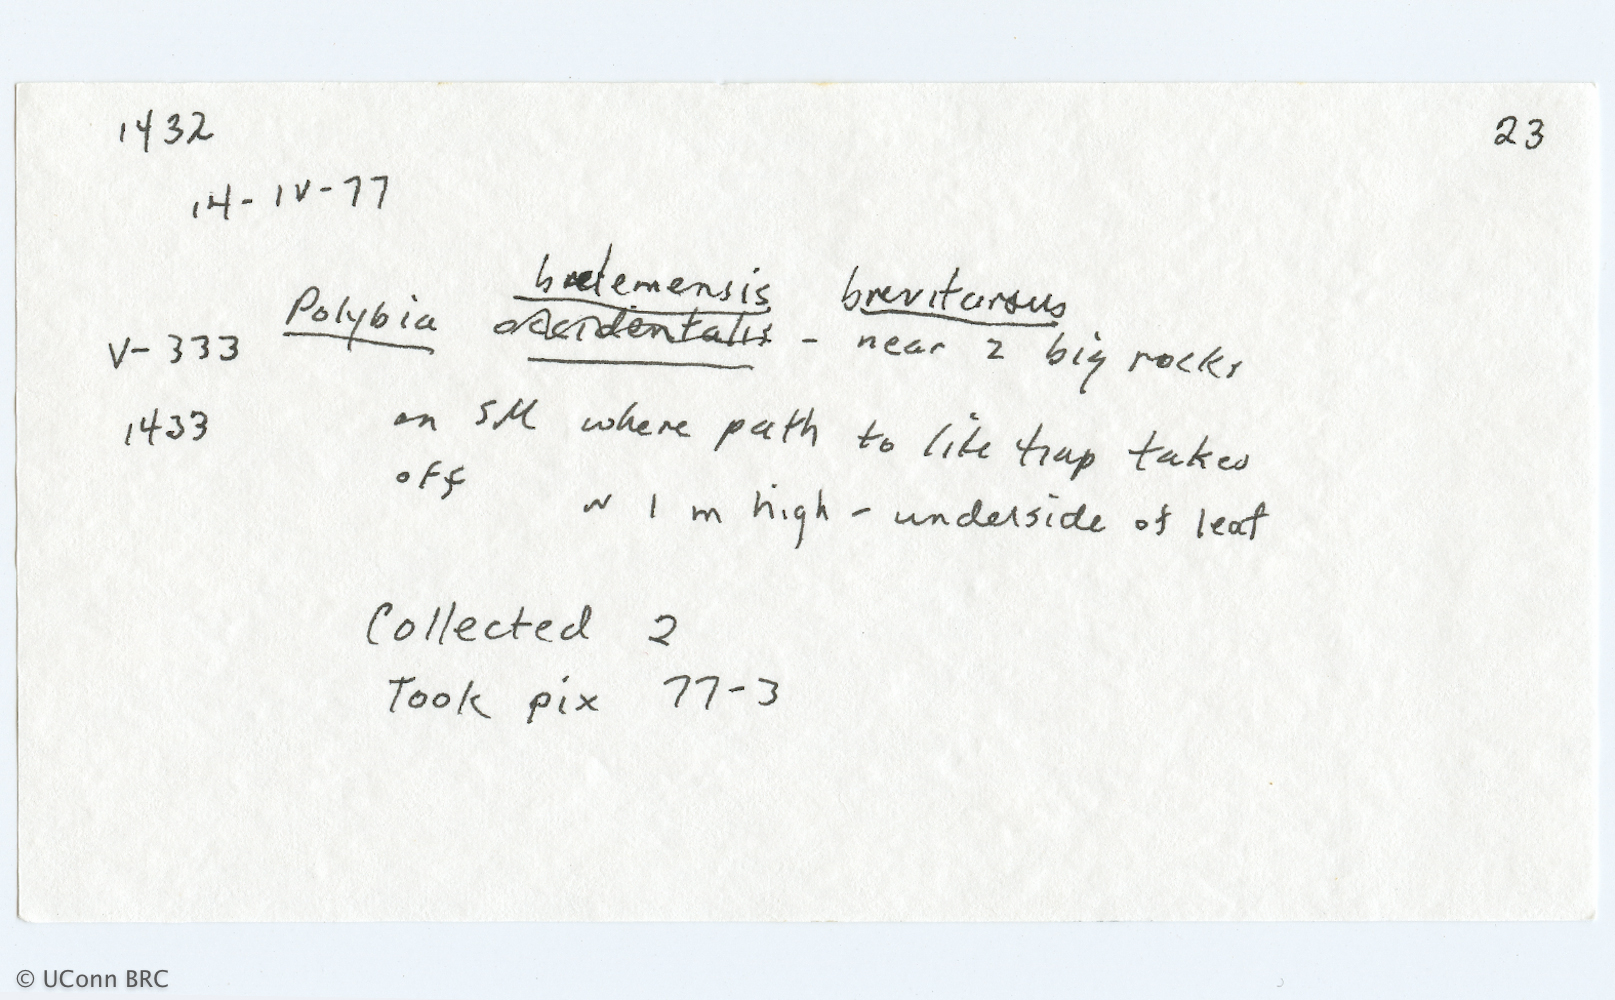 1432
23
14-IV-77
belemensis brevitarsus
Polybia occidentalis - near 2 big rocks
V-333
1433
on SM where path to lite trap takes
off
~ 1 m high - underside of leaf
Collected 2
Took pix 77-3
© UConn BRC